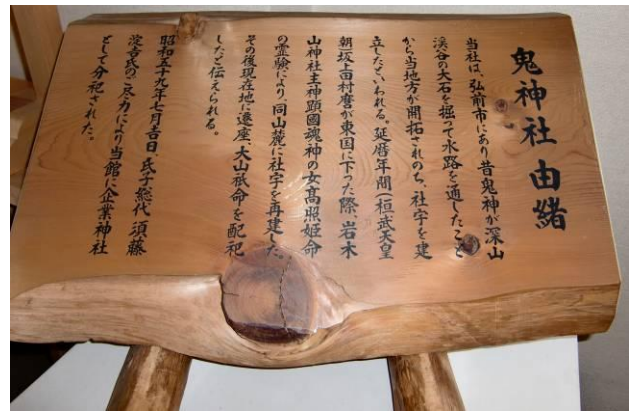 鬼神社 由緒
当社は、弘前市にあり昔鬼神が深山
渓谷の大石を掘って水路を通したこと
から当地方が開拓されのち、社宇を建
立したといわれる。延暦年間(桓武天皇
朝坂上田村磨が東国に下った際、岩木
山神社主神顕國魂神の女髙照姫命
の霊験により、同山麓に社宇を再建した。
その後現在地に遷座、大山祇命を配祀
したと伝えられる。
昭和五十九年七月吉日、氏子総代、須藤
淀吉氏のご尽力により当館に企業神社
として分祀された。